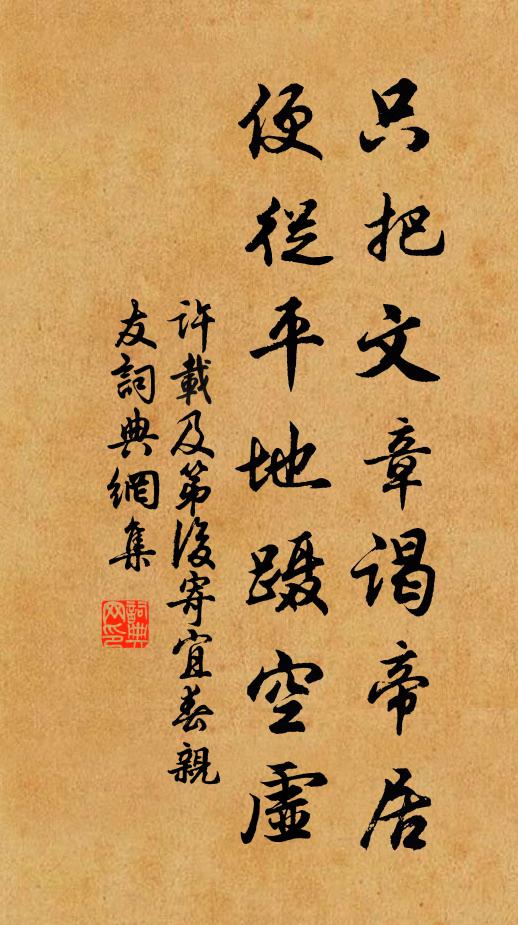 只把文章谒帝居
便從平地蹑空虛
許載及第後寄宜春親
友詞典網集
詞典
网印